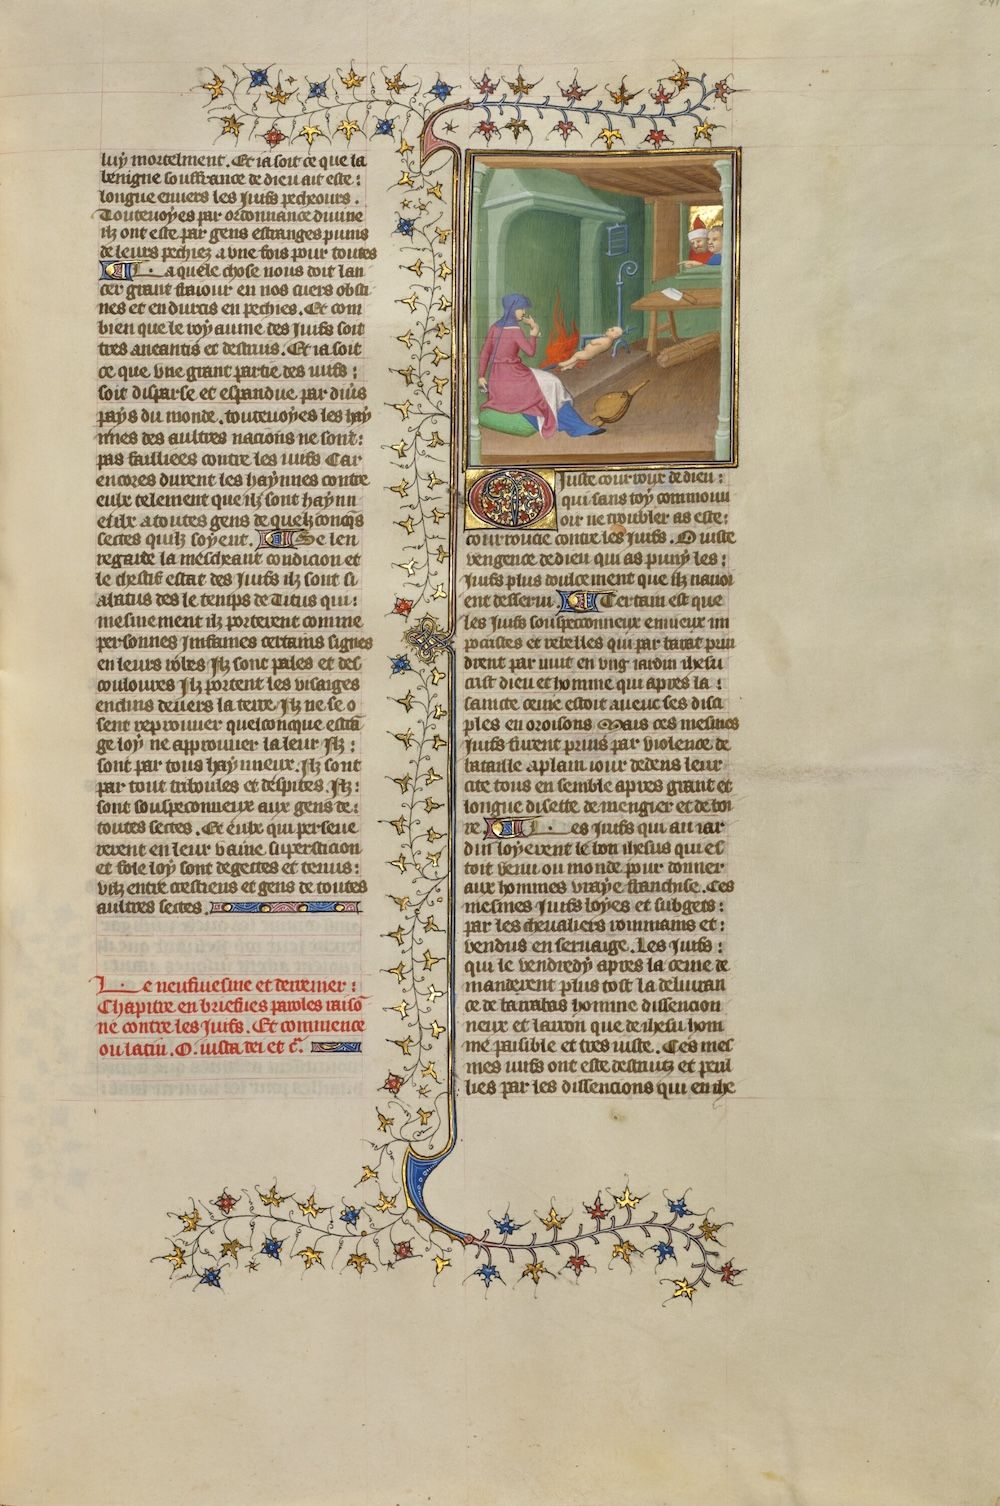 luy mortelment. Et ia soit ce que la
benigne souffrance de dieu ait este:
longue enuers les Juifs pecheours.
Toutevoyes par ordonnance diuine
ilz ont este par gens estranges puniz
de leurs pechiez a vne fois pour toutes
La quele chose nous doit lan
cer grant fraiour en nos cuers obsti
nes et endurcis en pechies. Et com
bien que le royaume des Juifs soit
tres aneantis et destruis. Et ia soit
ce que vne grant partie des iuifs:
soit disparse et espandue par diuers
pays du monde. toutevoyes les hay
nnes des aultres nacions ne sont:
pas faillies contre les iuifs Car
encores durent les haynnes contre
eulx telement que ilz sont haynn
eulx a toutes gens de quelconqs
sectes quilz soyent. Se len
regarde la meschant condicion et
le chestif estat des Juifs ilz sont si
alatus des le temps de Titus qui:
mesmement ilz porterent comme
personnes Imfames certains signes
en leurs robes Ilz sont pales et des
couloures Ilz portent les visaiges
enclins deuers la terre. Ilz ne se o
sent reprouuer quelconque estra
ge loy ne approuuer la leur Ilz:
sont par tous haynneux. Ilz sont
par tout triboules et despites. Ilz:
sont souspeconneux aux gens de:
toutes sectes. Et eulx qui perseue
rerent en leur vaine supersticion
et fole loy sont degectes et tenus:
vilz entre crestiens et gens de toutes
aultres sectes.
Le neufiuesme et derrenier:
Chapitre en briefues paroles raiso
ne contre les Juifs. Et commence
ou latin. O. iusta dei et c.
O Juste courroux de dieu:
qui sans toy commouu
oir ne troubler as este:
courroucie contre les Juifs. O iuste
vengence de dieu qui as puny les:
Juifs plus doulcement que ilz nauoi
ent desserui. Certain est que
les Juifs souspeconneux enuieux im
pocrites et rebelles qui par tatat prin
drent par nuit en vng iardin ihesu
crist dieu et homme qui apres la:
saincte cene estoit auecques ses disci
ples en oroisons Mais ces mesmes
Juifs furent prins par violence de
bataille a plain iour dedens leur
cite tous ensemble apres grant et
longue disette de mengier et de boi
re Les Juifs qui au iar
din loyerent le bon ihesus qui es
toit venu ou monde pour donner
aux hommes vraye franchise. Ces
mesmes Juifs loyes et subgets:
par les cheualiers rommains et:
vendus en seruaige. Les Juifs:
qui le vendredy apres la cene de
manderent plus tost la deliuran
ce de barrabas homme dissencion
neux et larron que de ihesu hom
me paisible et tres iuste. Ces mes
mes iuifs ont este destruiz et peul
lies par les dissencions qui en ihe